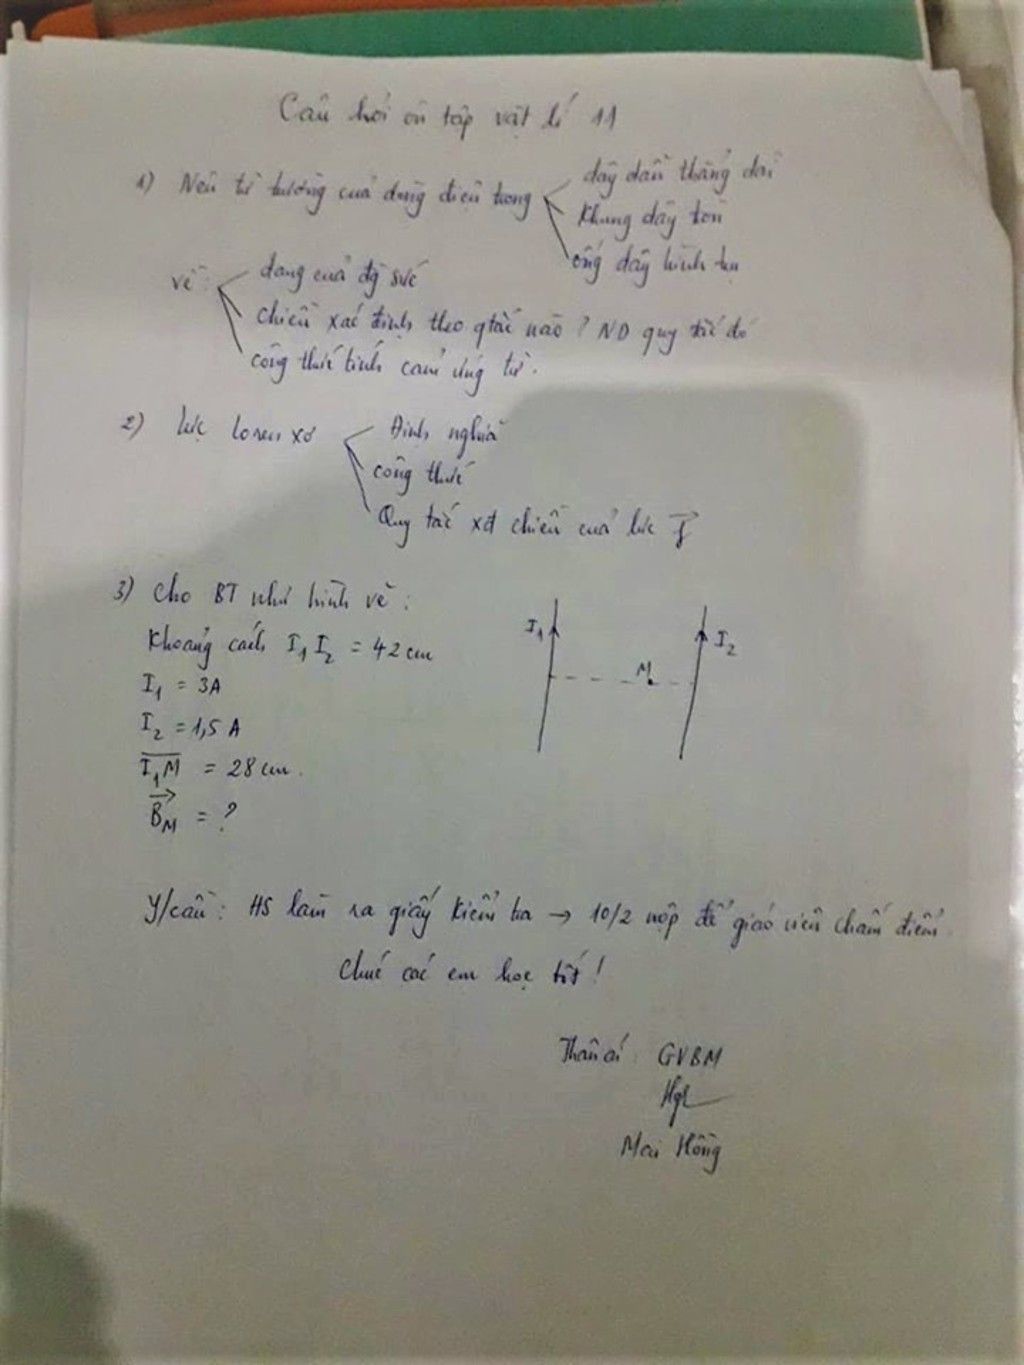 Câu hỏi ôn tập vật lí 11
1) Nêu từ trường của dòng điện trong
dây dẫn thẳng dài
Khung dây tròn
ống dây hình trụ
về:
dạng của đg sức
chiều xác định theo qtắc nào? ND quy tắc đó
công thức tính cảm ứng từ.
2) lực loren xơ
Định nghĩa
công thức
Quy tắc xđ chiều của lực f
3) Cho BT như hình vẽ:
Khoảng cách I₁ I₂ = 42 cm
I₁ = 3A
I₂ = 1,5 A
I₁M = 28 cm.
B_M = ?
I₁
M
I₂
Y/cầu: HS làm ra giấy kiểm tra → 10/2 nộp để giáo viên chấm điểm.
Chúc các em học tốt!
Thân ái GVBM
Mai Hồng